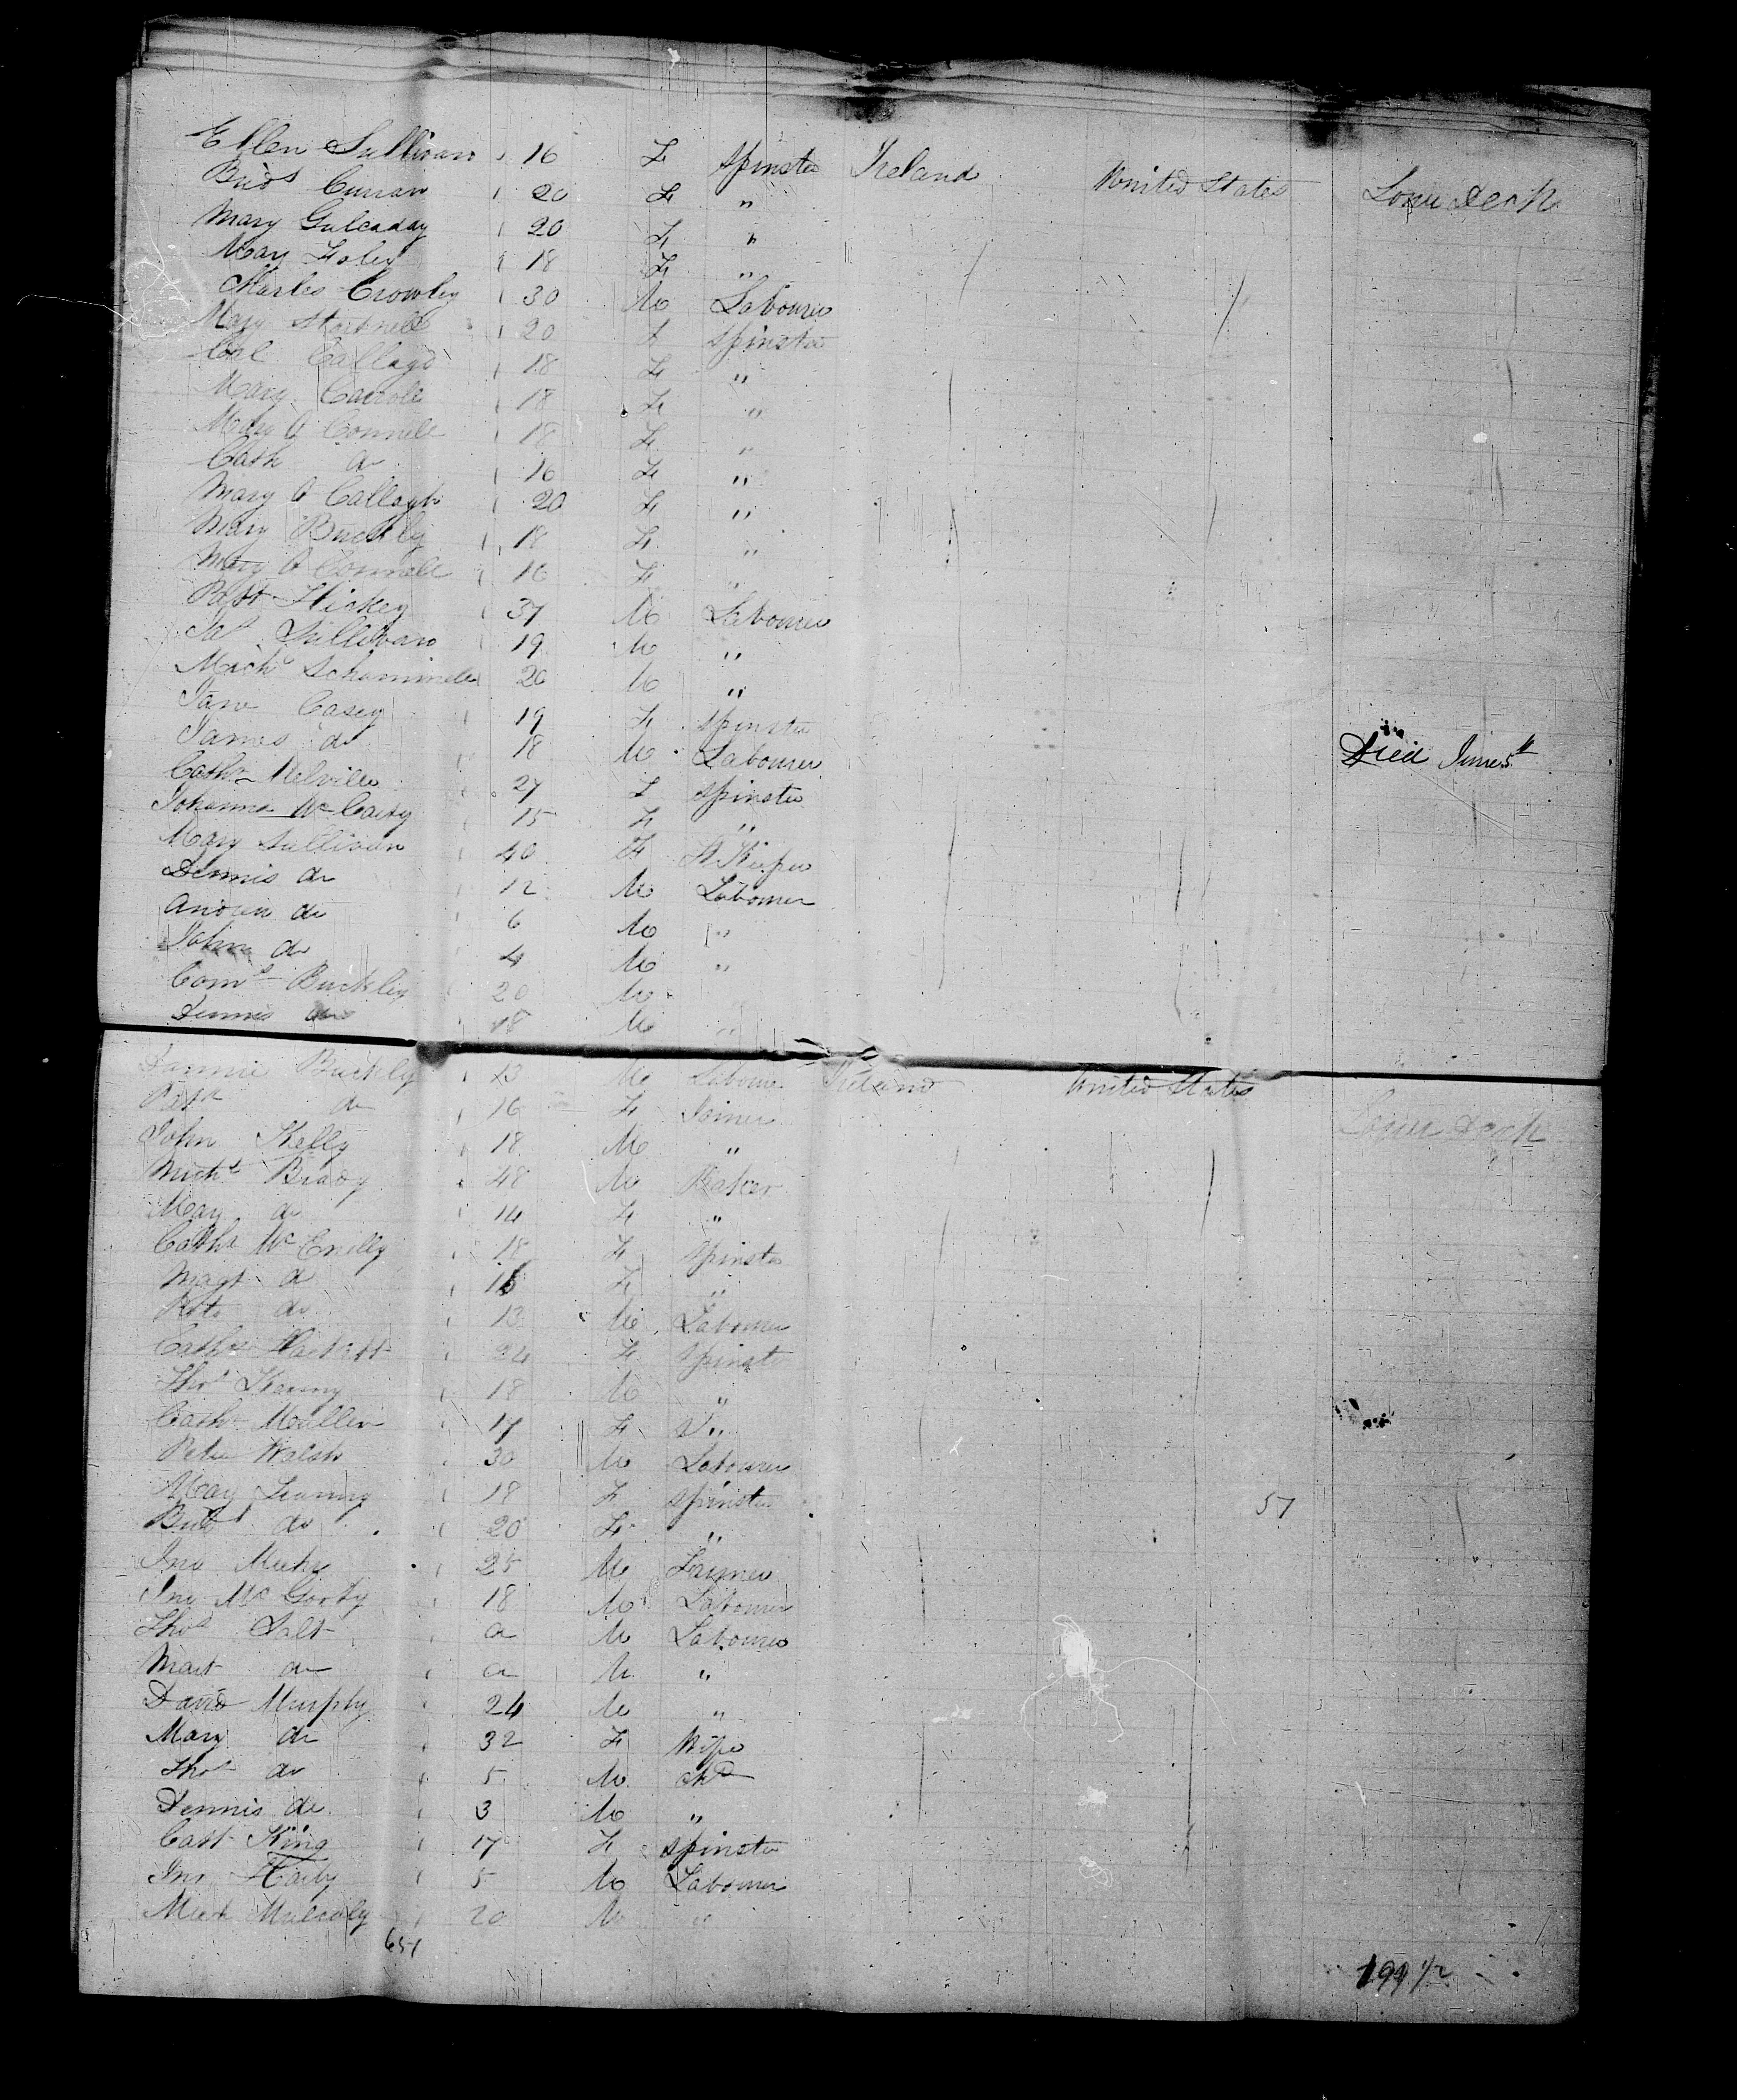 Ellen Sullivan 16 F Spinster Ireland United States Lower Deck
Bridt Curran 20 F "
Mary 20 F "
Mary Foley 18 F "
Charles Crowley 30 M Labourer
Mary 20 F Spinster
18 F "
Mary Carroll 18 F "
Mary O Connell 18 F "
Cath do 16 F "
Mary O Callagh 20 F "
Mary Buckley 18 F "
Mary O Connell 16 F "
Patt Hickey 37 M Labourer
Jas Sullivan 19 M "
Michl 20 M "
Jane Casey 19 F Spinster
James do 18 M Labourer Died June 5th
Cathe Melville 27 F Spinster
Johanna McCarty 15 F "
Mary Sullivan 40 F H. Keeper
Dennis do 12 M Labourer
Andrew do 6 M "
John do 4 M "
Corns Buckley 20 M "
Dennis do 18 M "
Buckly 13 M Labourer Ireland United States Lower Deck
Patk do 16 F Joiner
John Kelly 18 M "
Michl Brady 48 M Baker
Mary do 14 F "
Cathe Mc 18 F Spinster
Magt do 16 F "
do 13 M Labourer
Cathe Hackett 24 F Spinster
Thos Kenny 18 M "
Cathe Mullen 17 F "
Peter Walsh 30 M Labourer
Mary 18 F Spinster 57
Bridt do 20 F "
Jno 25 M Farmer
Jno Mc Gorty 18 M Labourer
Thos Salt a M Labourer
Mart do a M "
David Murphy 24 M "
Mary do 32 F Wife
Thos do 5 M Chd
Dennis do 3 M "
Cath King 17 F Spinster
Jno 5 M Labourer
20 M "
651
199 1/2